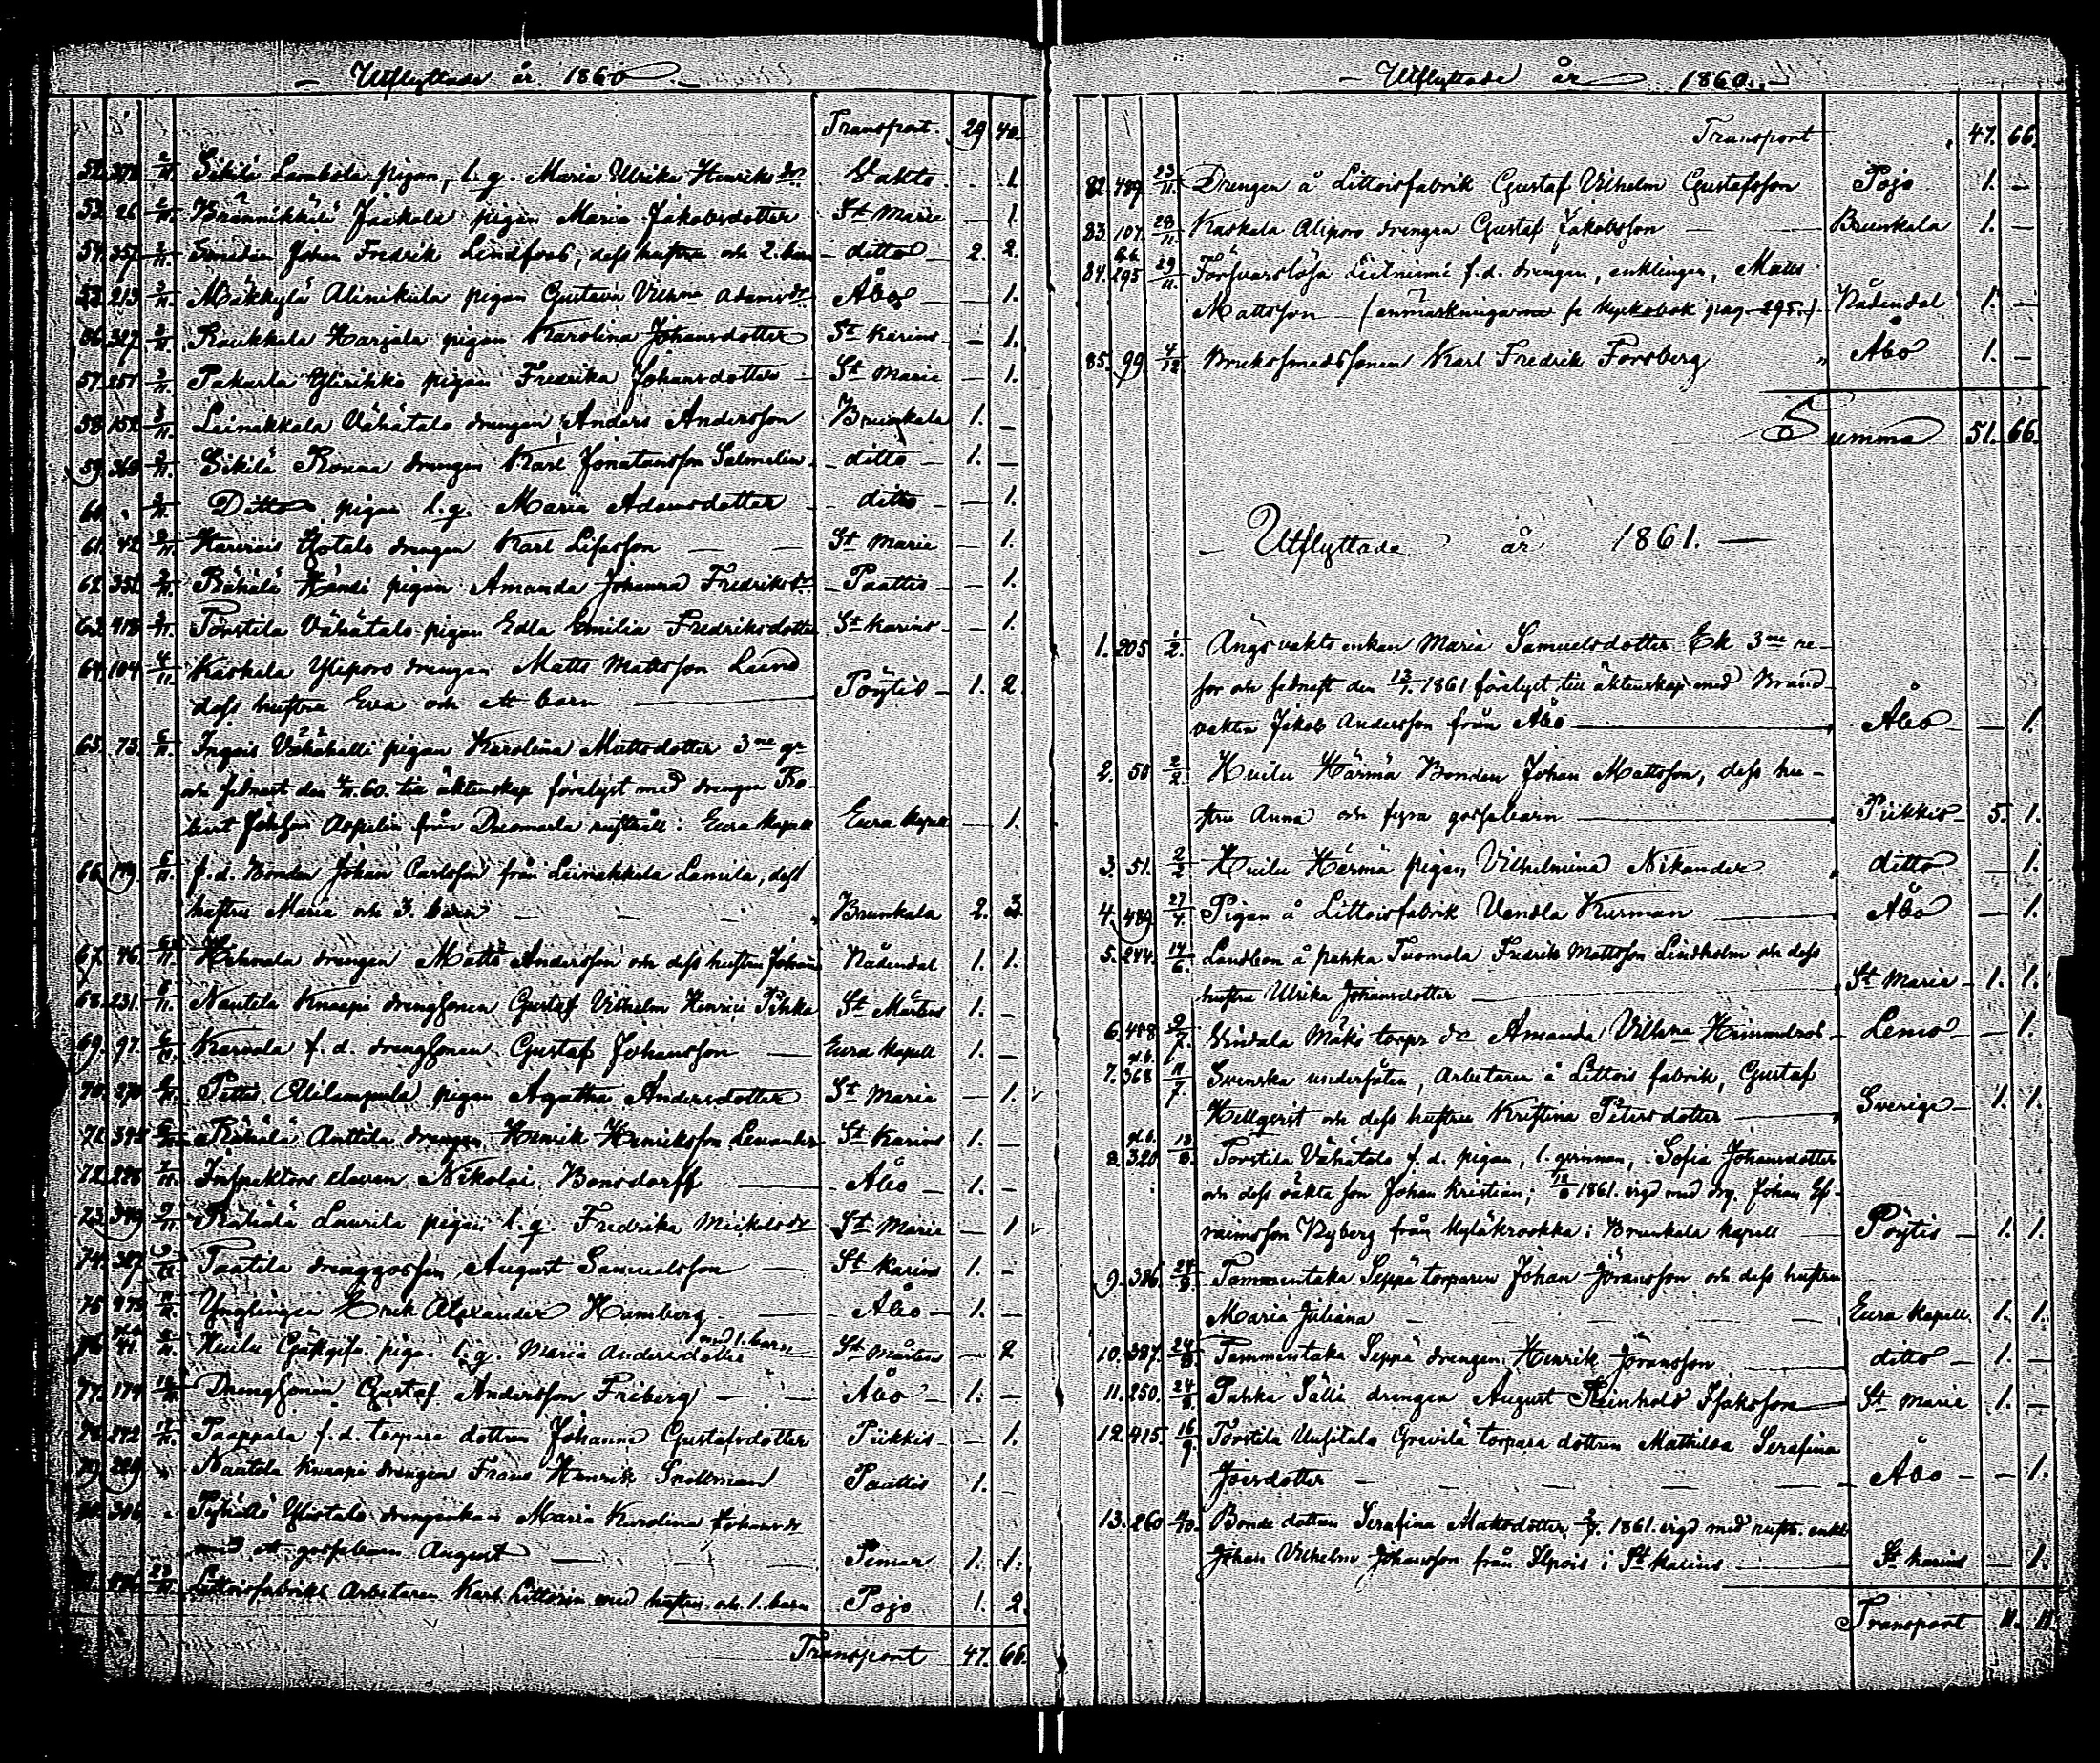 Utflyttade år 1860.
Transport. 29 40.
52. 378 2/11. Lambola pigan, l. q. Maria Ulrika Henriksdr 1.
53. 26 2/11. Jaakola pigan Maria Jakobsdotter St Marie — 1.
54. 357 2/11. Johan Fredrik Lindfors, dess hustru och 2. barn ditto 2. 2.
55. 213 2/11. Mäkkylä Alinikula pigan Gustava Vilhna Adamsdr Åbo — 1.
56. 327 2/11. Raukkala Harjala pigan Karolina Johansdotter St Karins — 1.
57. 251 3/11. Pakurla Ylirihko pigan Fredrika Johansdotter St Marie — 1.
58. 152 3/11. Leinakkala Vähätalo drengen Anders Andersson Brunkala 1. —
59. 369 3/11. Sikilä Rouna drengen Karl Jonatansson Salmelin ditto 1. —
60. " 3/11. Ditto pigan l. q. Maria Adamsdotter ditto — 1.
61. 42 3/11. Yotalo drengen Karl St Marie — 1.
62. 352 3/11. Rähälä Händi pigan Amanda Johanna Fredriksdr Paattis — 1.
63. 418 3/11. Torstila Vähätalo pigan Edla Emilia Fredriksdotter St Karins — 1.
64. 104 4/11. Kaskala Ylipors drengen Matts Mattsson Lund
dess hustru Eva och ett barn Pöytis 1. 2.
65. 73. 5/11. Ingois Vähähalli pigan Karolina Mattsdotter 3ne gr
och sednast den 4/11.60. till äktenskap förelyst med drengen Ro-
bert Johsson Aspelin från rusthåll i Eura kapell Eura kapell — 1.
66. 149. 5/11. f.d. Bonden Johan Carlsson från Leinakkala Lamila, dess
hustru Maria och 3. barn Brunkala 2. 3.
67. 46. 5/11. drengen Matts Andersson och dess hustru Johanna Nådendal 1. 1.
68. 231. 5/11. Nautela Knaapi drengsonen Gustaf Vilhelm Henrici Pihka St Mårtens 1. —
69. 97. 6/11. Karvala f. d. drengsonen Gustaf Johansson Eura kapell 1. —
70. 270 6/11. Pettis Alilampula pigan Agatha Andersdotter St Marie — 1.
71. Rähälä Anttila drengen Henrik Henriksson Lewander St Karins 1. —
72. 228 7/11. Inspektors eleven Nikolai Bonsdorff Åbo 1. —
73. 349 9/11. Rähälä Laurila pigan l. q. Fredrika Mickelsdr St Marie — 1
74. 387 9/11. Taatila drenggossen August Samuelsson St Karins 1. —
75. 475 11/11. Ynglingen Erik Alexander Hamberg Åbo — 1. —
76. 41. Huilu Gästgifv. pigan l. q. Maria Andersdotter med 1. barn St Mårtens — 2
77. 174 Drengsonen Gustaf Andersson Friberg Åbo 1. —
78. 242 Paappala f. d. torpare dottren Johanna Gustafsdotter Piikkis — 1.
79. 229 " Nautela Knaapi drengen Frans Henrik Snellman Paattis 1. —
80. 306 " Ylistalo drengenkan Maria Karolina Johansdr
med ett gossebarn August Pemar 1. 1.
23/11. Littoisfabriks Arbetaren Karl Littorin med hustru och 1. barn Pojo 1. 2.
Transport 47. 66.
Utflyttade år 1860.
Transport 47. 66.
82. 489. 23/11. Drengen å Littoisfabrik Gustaf Vilhelm Gustafsson Pojo 1. —
83. 107. 28/11. Kaskala Alipors drengen Gustaf Jakobsson Brunkala 1. —
84. 295 29/11. Försvarslöse Lietniemi f. d. drengen, enklingen, Matts
Mattsson (anmärkningarne se kyrkobok pag. 295.) Nådendal 1. —
85. 99. 4/12. Bruksmedssonen Karl Fredrik Forsberg Åbo 1. —
Summa 51. 66.
Utflyttade år 1861.
1. 205 1/2. Ängsvakts enkan Maria Samuelsdotter Ek 3ne re-
sor och sednast den 13/1. 1861 förelyst till äktenskap med Brand-
vakten Jakob Andersson från Åbo Åbo — 1.
2. 50 2/2 Huilu Härmä Bonden Johan Mattsson, dess hu-
stru Anna och fyra gossebarn Piikkis 5. 1.
3. 51. 2/2 Huilu Härmä pigan Vilhelmina Nikander ditto — 1.
4. 489 27/4. Pigan å Littoisfabrik Vendla Kurman Åbo — 1.
5. 244. 14/6. Landtbon å Pahka Tuomola Fredrik Mattsson Lindholm och dess
hustru Ulrika Johansdotter St Marie 1. 1.
6. 488 9/7. Vindala Mäki torpr dr Amanda Vilhna Lemo — 1.
7. 368 11/7. Svenska undersåten, Arbetaren å Littois fabrik, Gustaf
Hellqvist och dess hustru Kristina Petersdotter Sverige 1. 1.
8. 320 18/8. Torstila Vähätalo f. d. pigan, l. qvinnan, Sofia Johansdotter
och dess oäkta son Johan Kristian; 18/8 1861. vigd med drg. Johan Ef-
raimsson Nyberg från Kyläkrookka i Brunkala kapell Pöytis 1. 1.
9. 386. 24/8. Tammentaka Seppä torparen Johan Göransson och dess hustru
Maria Juliana Eura Kapell. 1. 1.
10. 387. 24/8. Tammentaka Seppä drengen Henrik Göransson ditto 1. —
11. 250. 24/8. Pahka Sälli drengen August Reinhold Isaksson St Marie 1. —
12. 415. 16/9. Torstila Uusitalo Grevilä torpare dottren Mathilda Serafina
Joersdotter Åbo — 1.
13. 260 Bonde dottren Serafina Mattsdotter, 1861. vigd med rusth. enkl.
Johan Vilhelm Johansson från Ilpois i St Karins St Karins — 1.
Transport 11. 11.